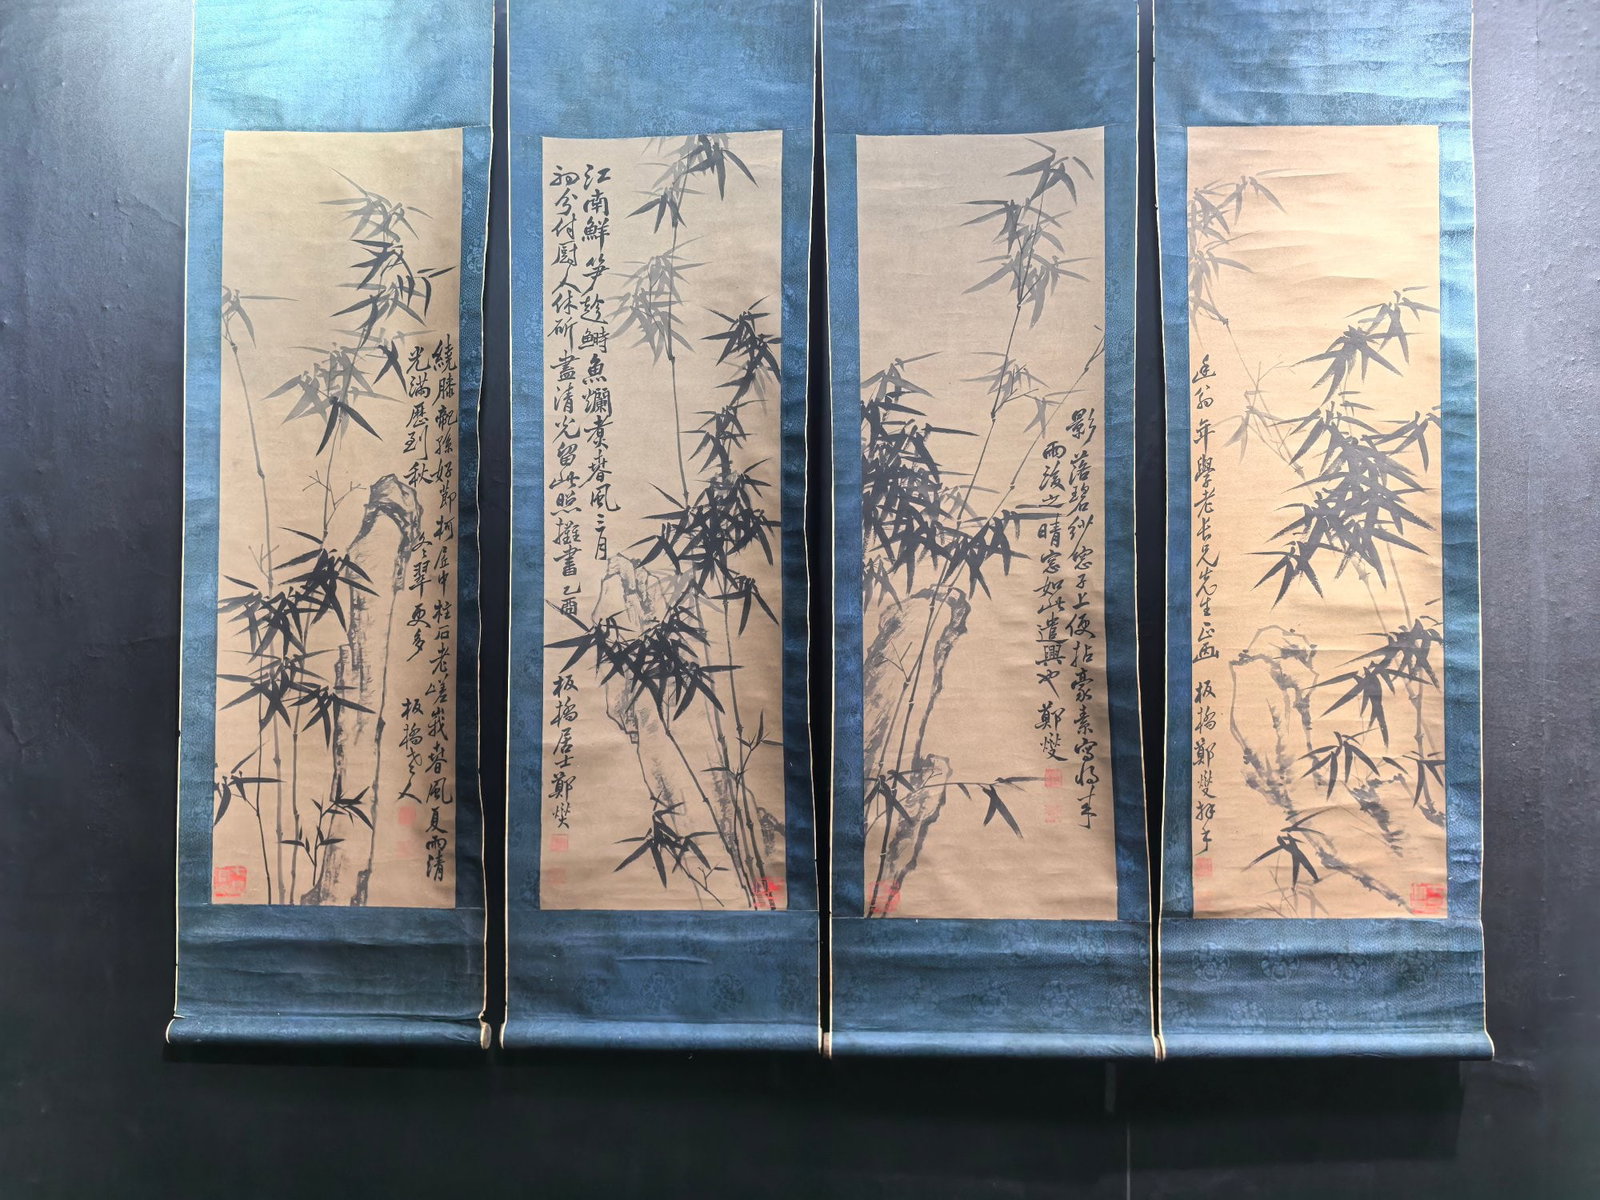 翁年學老長兄先生正画 板橋鄭燮拜手
影落碧紗窓子上便拈豪素寫將來
雨後之晴窓如此遣興也 鄭燮
江南鮮笋趁鰣魚爛煑春風三月
初分付厨人休斫盡清光留此照攤書 乙酉 板橋居士鄭燮
繞膝龍孫好節柯居中柱石老嵯峩春風夏雨清
光滿歷到秋冬翠更多 板橋老人